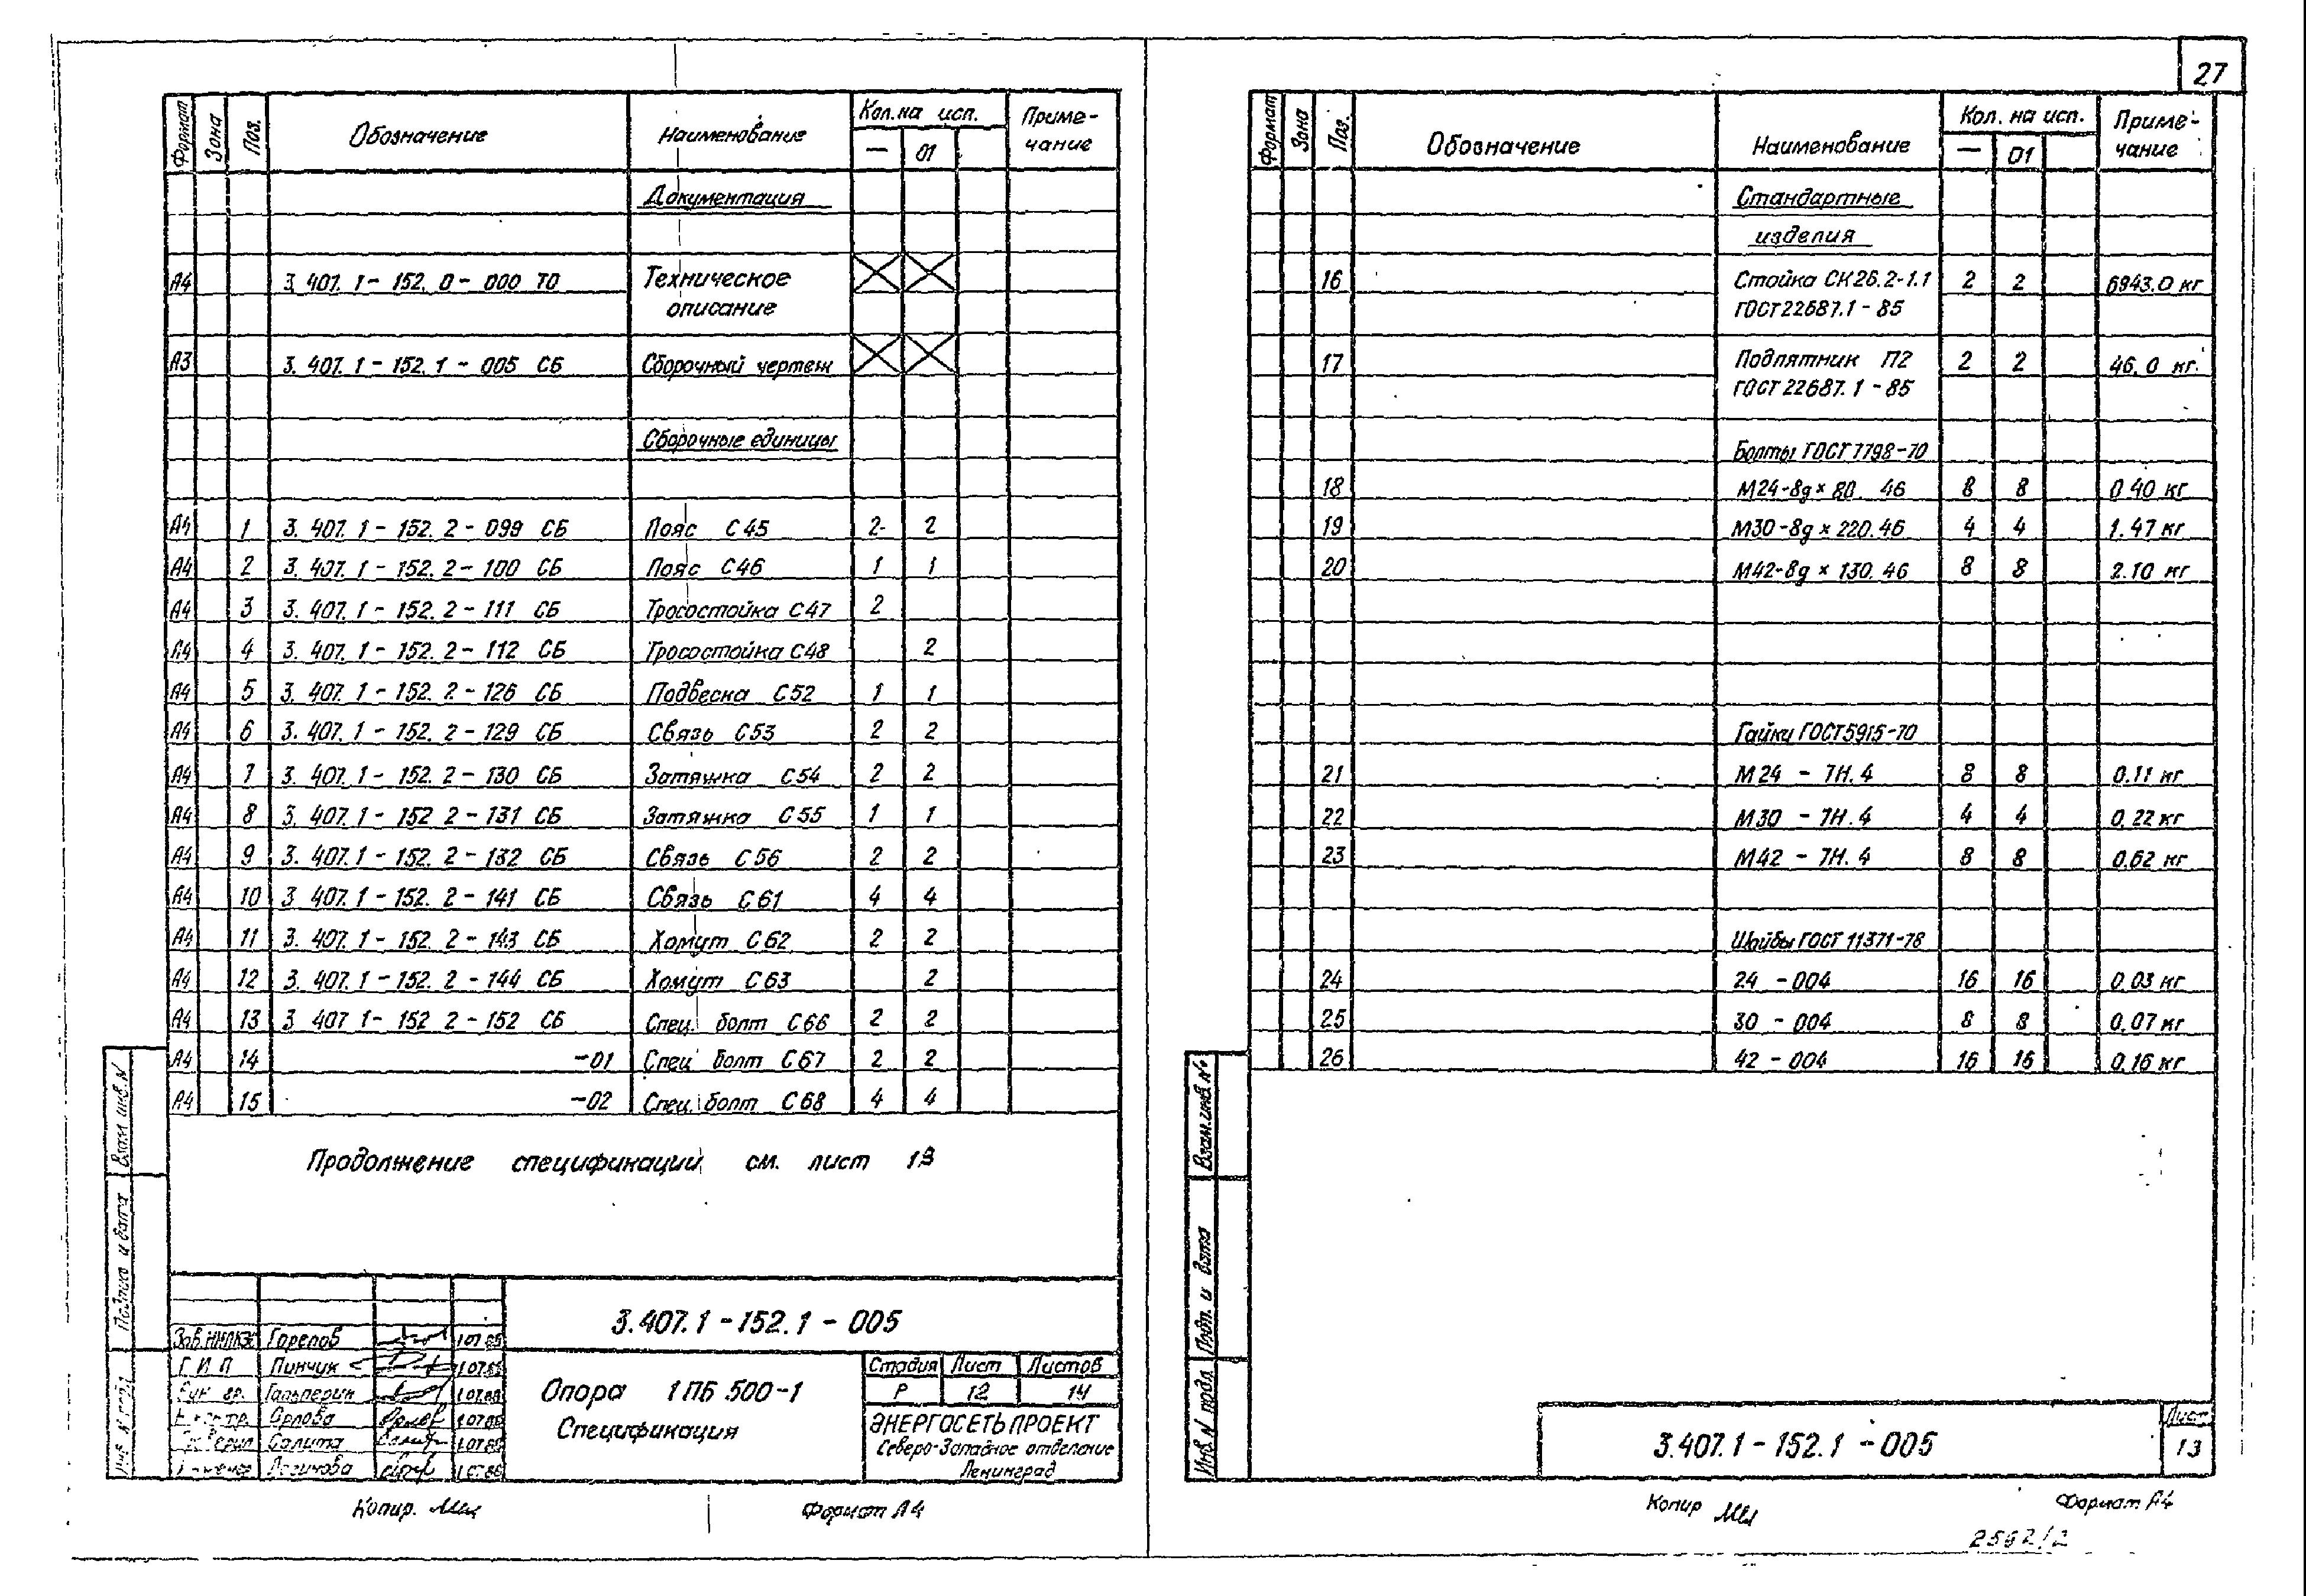 27
Формат Зона Поз. Обозначение Наименование Кол. на исп. Приме-
— 01 чание
Документация
А4 3.407.1-152.0-000 ТО Техническое
описание
А3 3.407.1-152.1-005 СБ Сборочный чертеж
Сборочные единицы
А4 1 3.407.1-152.2-099 СБ Пояс С45 2 2
А4 2 3.407.1-152.2-100 СБ Пояс С46 1 1
А4 3 3.407.1-152.2-111 СБ Тросостойка С47 2
А4 4 3.407.1-152.2-112 СБ Тросостойка С48 2
А4 5 3.407.1-152.2-126 СБ Подвеска С52 1 1
А4 6 3.407.1-152.2-129 СБ Связь С53 2 2
А4 7 3.407.1-152.2-130 СБ Затяжка С54 2 2
А4 8 3.407.1-152.2-131 СБ Затяжка С55 1 1
А4 9 3.407.1-152.2-132 СБ Связь С56 2 2
А4 10 3.407.1-152.2-141 СБ Связь С61 4 4
А4 11 3.407.1-152.2-143 СБ Хомут С62 2 2
А4 12 3.407.1-152.2-144 СБ Хомут С63 2
А4 13 3 407 1-152 2-152 СБ Спец. болт С66 2 2
А4 14 -01 Спец болт С67 2 2
А4 15 -02 Спец. болт С68 4 4
Продолжение спецификации см. лист 13
Взам инв. N
Подпись и дата
3.407.1-152.1-005
Горелов
ГИП Пинчук
Гальперин
Орлова
Солита
Опора 1ПБ 500-1
Спецификация
Стадия Лист Листов
Р 12 14
ЭНЕРГОСЕТЬПРОЕКТ
Северо-Западное отделение
Ленинград
Копир.
Формат А4
Формат Зона Поз. Обозначение Наименование Кол. на исп. Приме-
— 01 чание
Стандартные
изделия
16 Стойка СК26.2-1.1 2 2 6943.0 кг
ГОСТ 22687.1-85
17 Подпятник П2 2 2 46.0 кг.
ГОСТ 22687.1-85
Болты ГОСТ 7798-70
18 М24-8g×80. 46 8 8 0.40 кг
19 М30-8g×220.46 4 4 1.47 кг
20 М42-8g×130.46 8 8 2.10 кг
Гайки ГОСТ 5915-70
21 М24 - 7Н.4 8 8 0.11 кг
22 М30 - 7Н.4 4 4 0.22 кг
23 М42 - 7Н.4 8 8 0.62 кг
Шайбы ГОСТ 11371-78
24 24 -004 16 16 0.03 кг
25 30 -004 8 8 0.07 кг
26 42 -004 16 16 0.16 кг
Взам.инв.№
Подп. и дата
Инв. N подл
3.407.1-152.1-005
Лист
13
Копир
Формат А4
2592/2